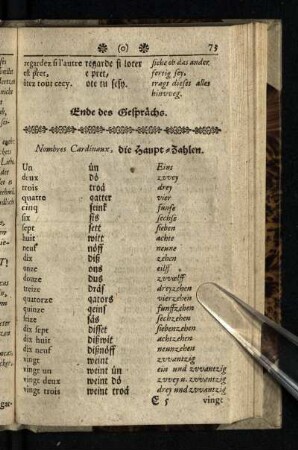 ❀ (0) ❀ 73
regardez si l'autre regarde si loter siehe ob das ander.
est prest. e pret, fertig sey.
ôtez tout cecy. ote tu sesy. tragt dieses alles
hinvveg.
Ende des Gesprächs.
Nombres Cardinaux, die Haupt-Zahlen.
Un ün Eins
deux dö zvvey
trois troä drey
quatre qatter vier
cinq seink funfe
six sis sechse
sept sett sieben
huit witt achte
neuf nöff neune
dix disi zehen
onze ons eilff
douze dus zvvölff
treize dräs dreyzehen
quatorze qators vierzehen
quinze qeins funffzehen
seize säs sechzehen
dix sept disset siebenzehen
dix huit diswit achtzehen
dix neuf disnöff neunzehen
vingt weint zvvantzig
vingt un weint ün ein und zvvantzig
vingt deux weint dö zvvey u. zvvantzig
vingt trois weint troä drey und zvvantzig
E 5 vingt